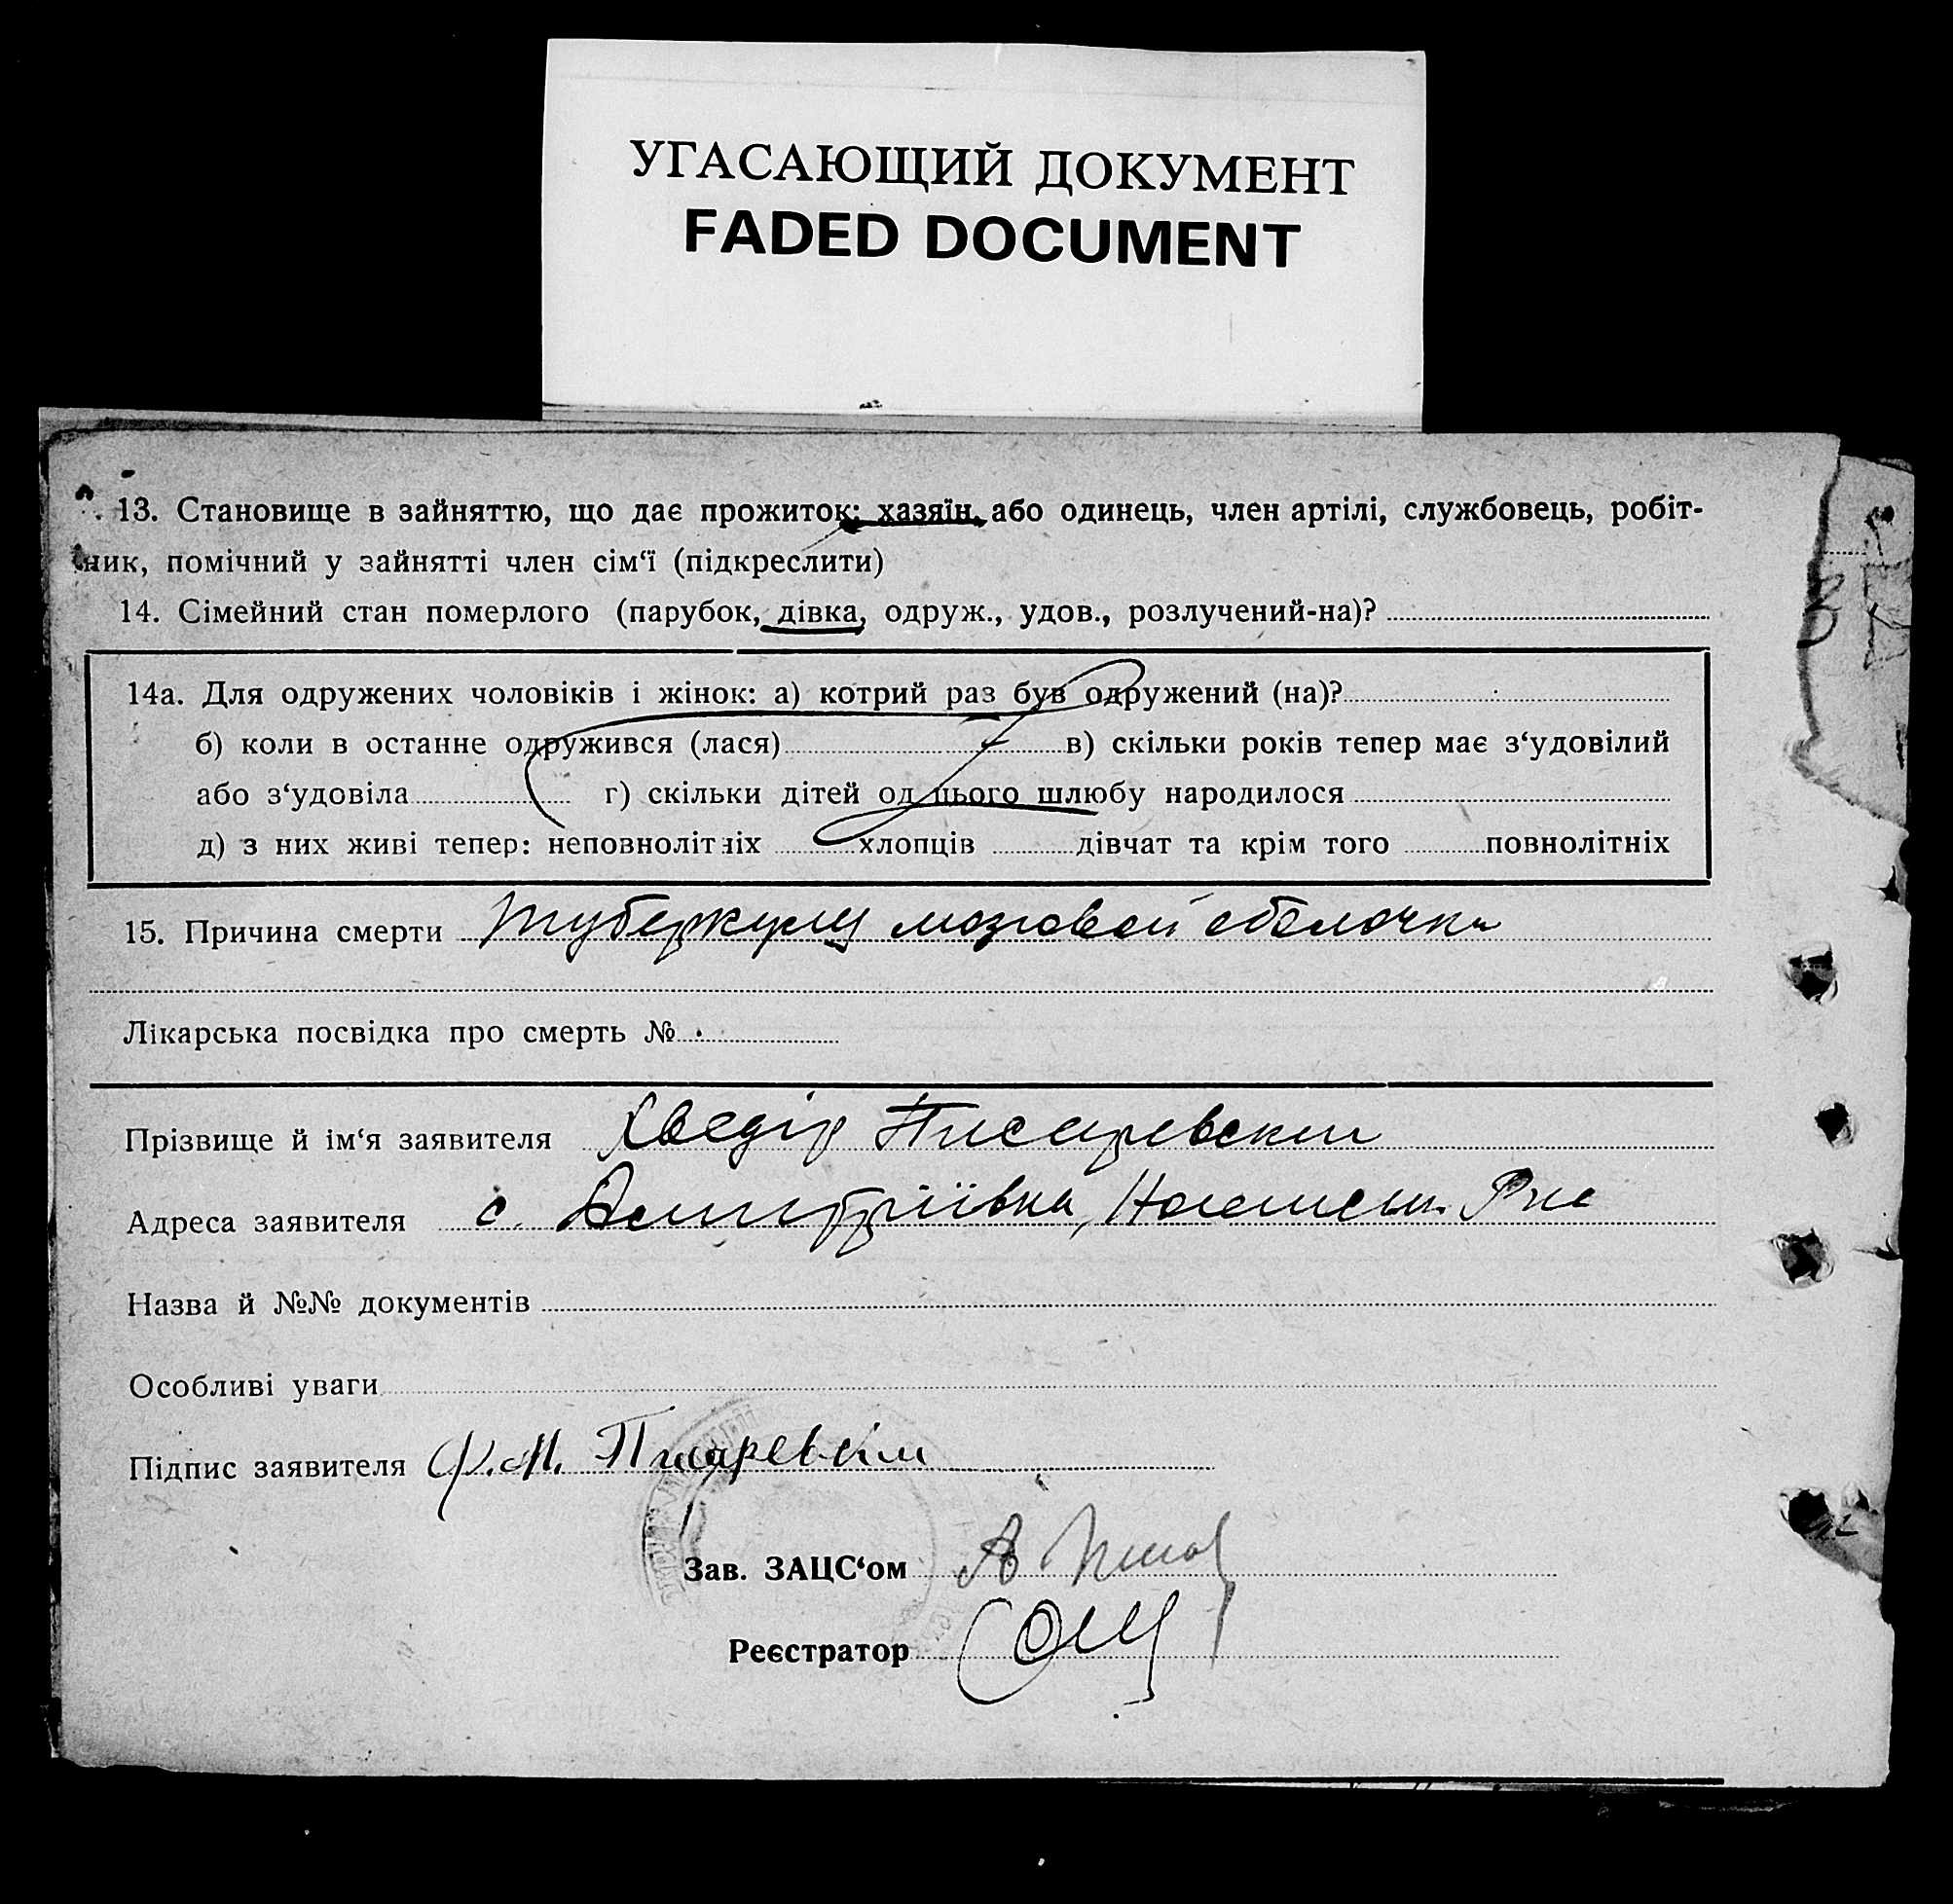 УГАСАЮЩИЙ ДОКУМЕНТ
FADED DOCUMENT
13. Становище в зайняттю, що дає прожиток: хазяїн, або одинець, член артілі, службовець, робіт-
ник, помічний у зайнятті член сім‘ї (підкреслити)
14. Сімейний стан померлого (парубок, дівка, одруж., удов., розлучений-на)?
14а. Для одружених чоловіків і жінок: а) котрий раз був одружений (на)?
б) коли в останне одружився (лася) в) скільки років тепер має з‘удовілий
або з‘удовіла г) скільки дітей од цього шлюбу народилося
д) з них живі тепер: неповнолітніх хлопців дівчат та крім того повнолітніх
15. Причина смерти туберкулез мозговой оболочки
Лікарська посвідка про смерть №
Прізвище й ім‘я заявителя Хведір Писаревский
Адреса заявителя с. Дмитріївка,
Назва й №№ документів
Особливі уваги
Підпис заявителя Ф.М. Писаревский
Зав. ЗАЦС‘ом
Реєстратор